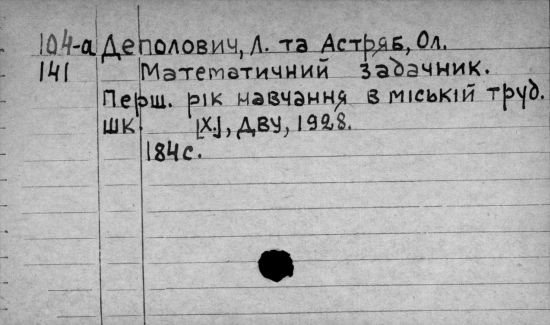 104-а Деполович, Л. та Астряб, Ол.
141 Математичний задачник.
Перш. рік навчання в міській труд.
шк. [Х.], ДВУ, 1928.
184 с.